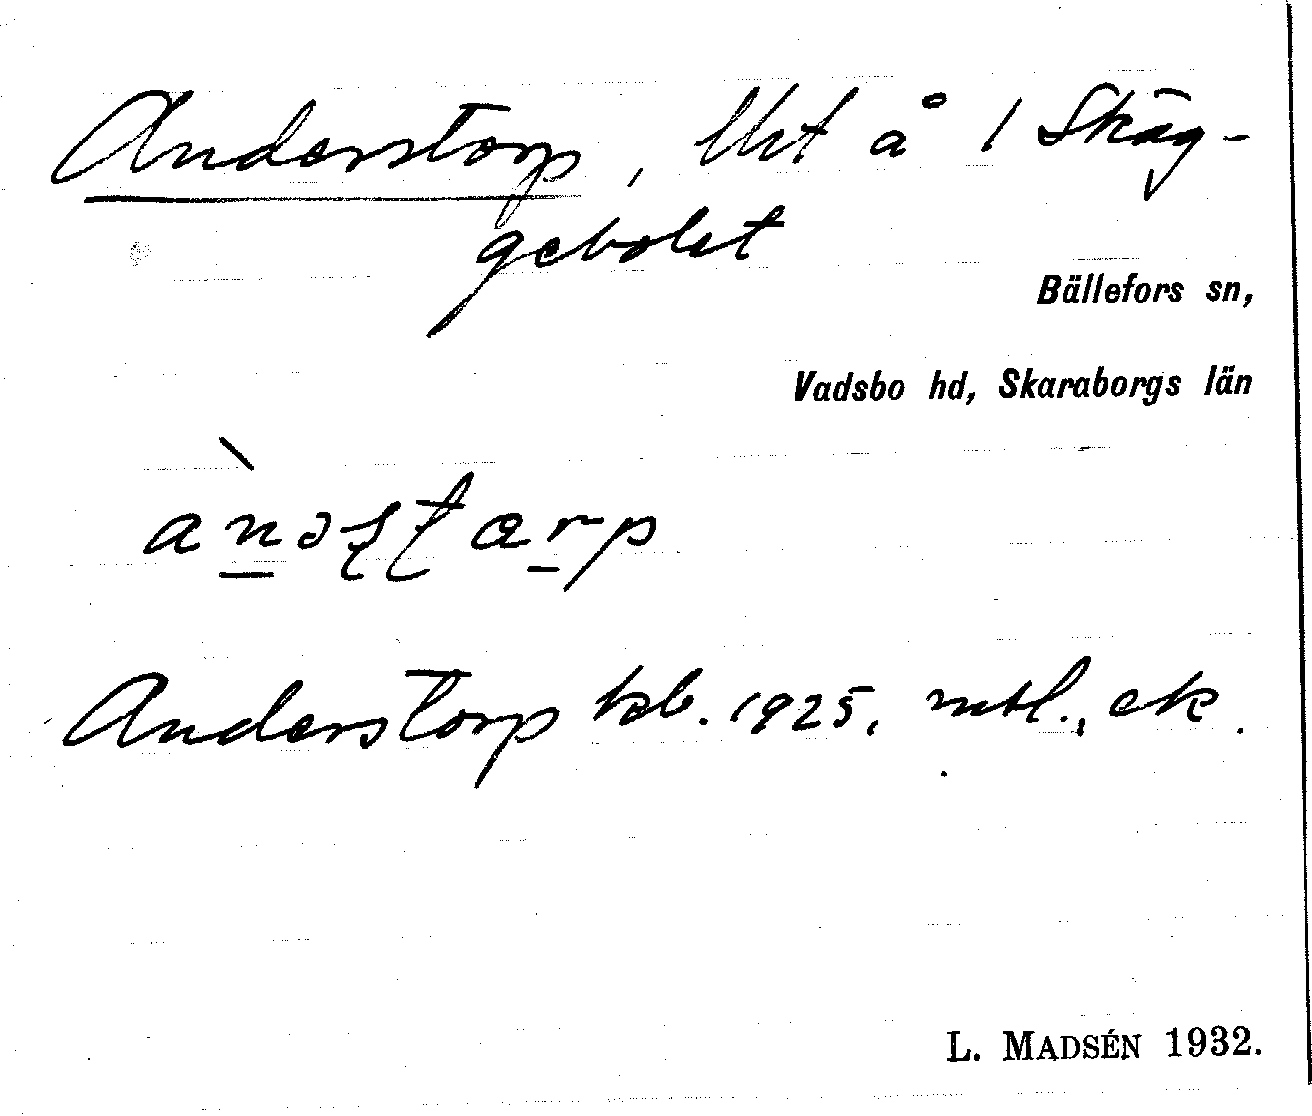 Anderstorp, lht å 1 Skäg-
gebolet
Bällefors sn,
Vadsbo hd, Skaraborgs län
Anderstorp kb. 1925, mtl., ek.
L. MADSÉN 1932.